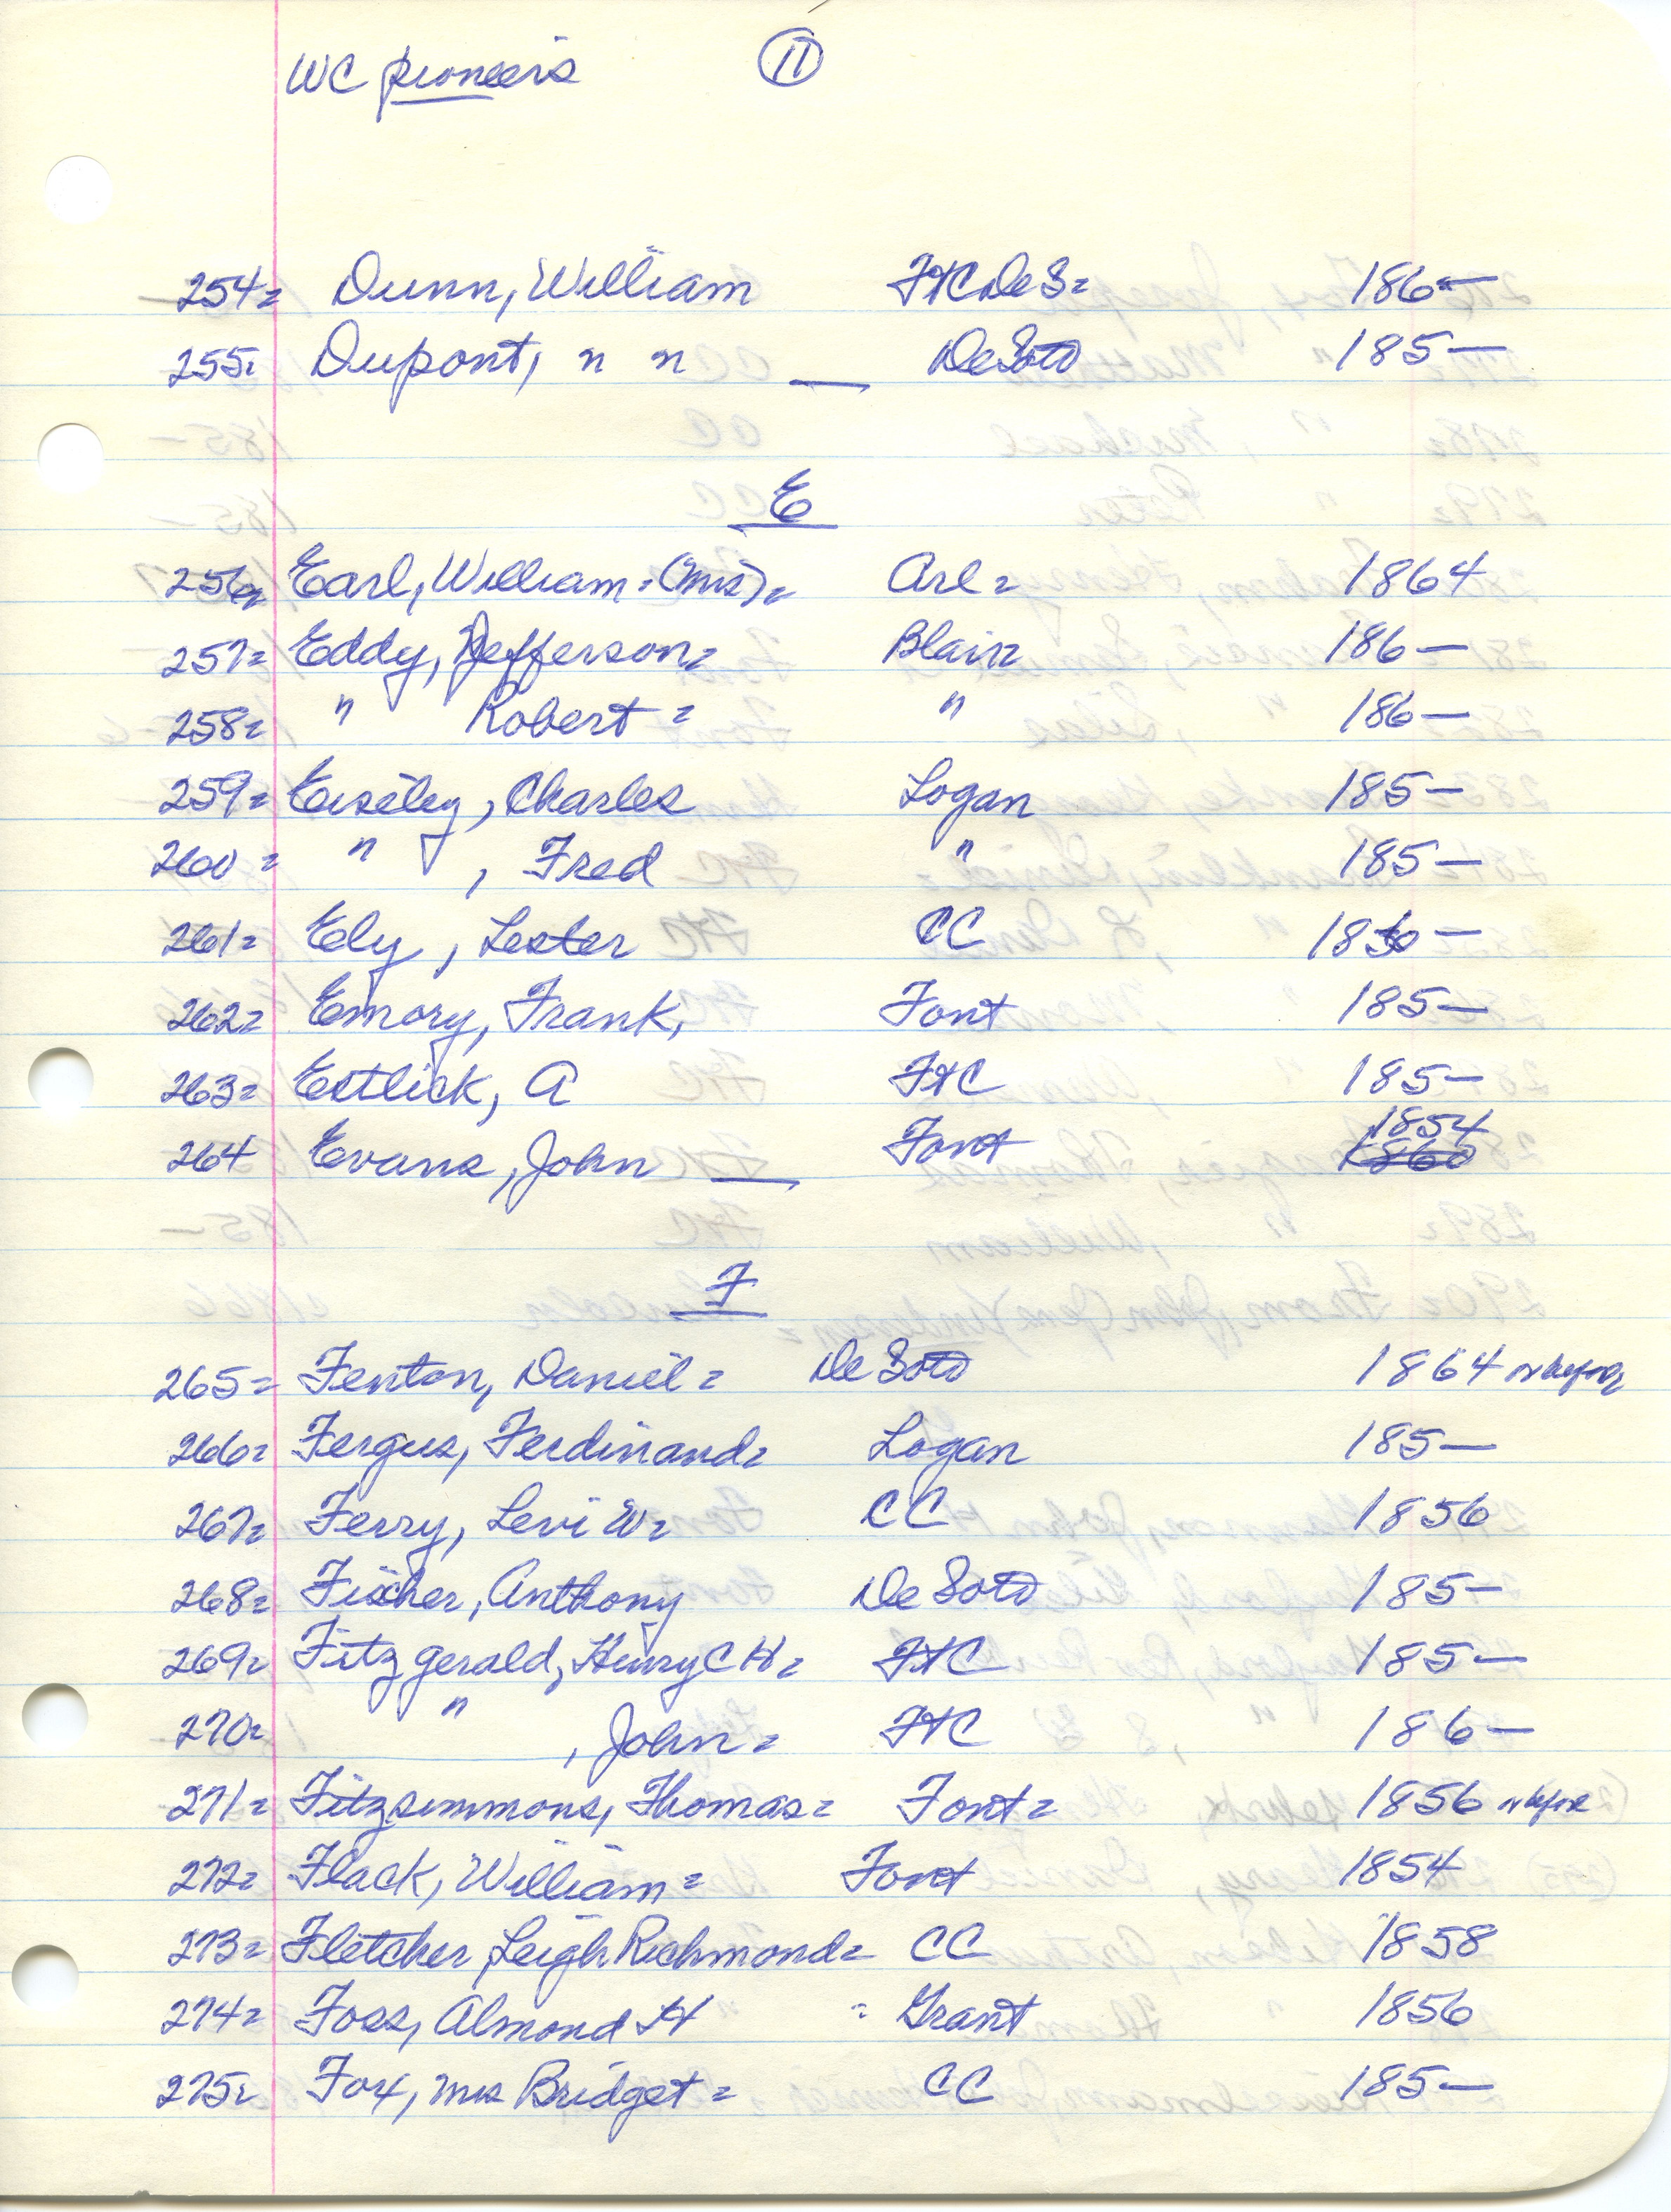 WC pioneers 11
254= Dunn, William FtC DeS= 186-
255= Dupont, " " DeSoto 185-
E
256= Earl, William = (Mrs)= Arl= 1864
257= Eddy, Jefferson= Blair= 186-
258= " Robert = " 186-
259= Eiseley, Charles Logan 185-
260 = " , Fred " 185-
261= Ely, Lester CC 185-
262= Emory, Frank, Font 185-
263= Estlick, A FtC 185-
264 Evans, John Font 1854
1860
F
265= Fenton, Daniel = De Soto 1864 or before
266= Fergus, Ferdinand= Logan 185-
267= Ferry, Levi W= CC 1856
268= Fischer, Anthony De Soto 185-
269= Fitzgerald, Henry C H= FtC 185-
270= " , John= FtC 186-
271= Fitzsimmons, Thomas= Font= 1856 or before
272= Flack, William= Font 1854
273= Fletcher, Leigh Richmond= CC 1858
274= Foss, Almond H = Grant 1856
275= Fox, Mrs Bridget = CC 185-